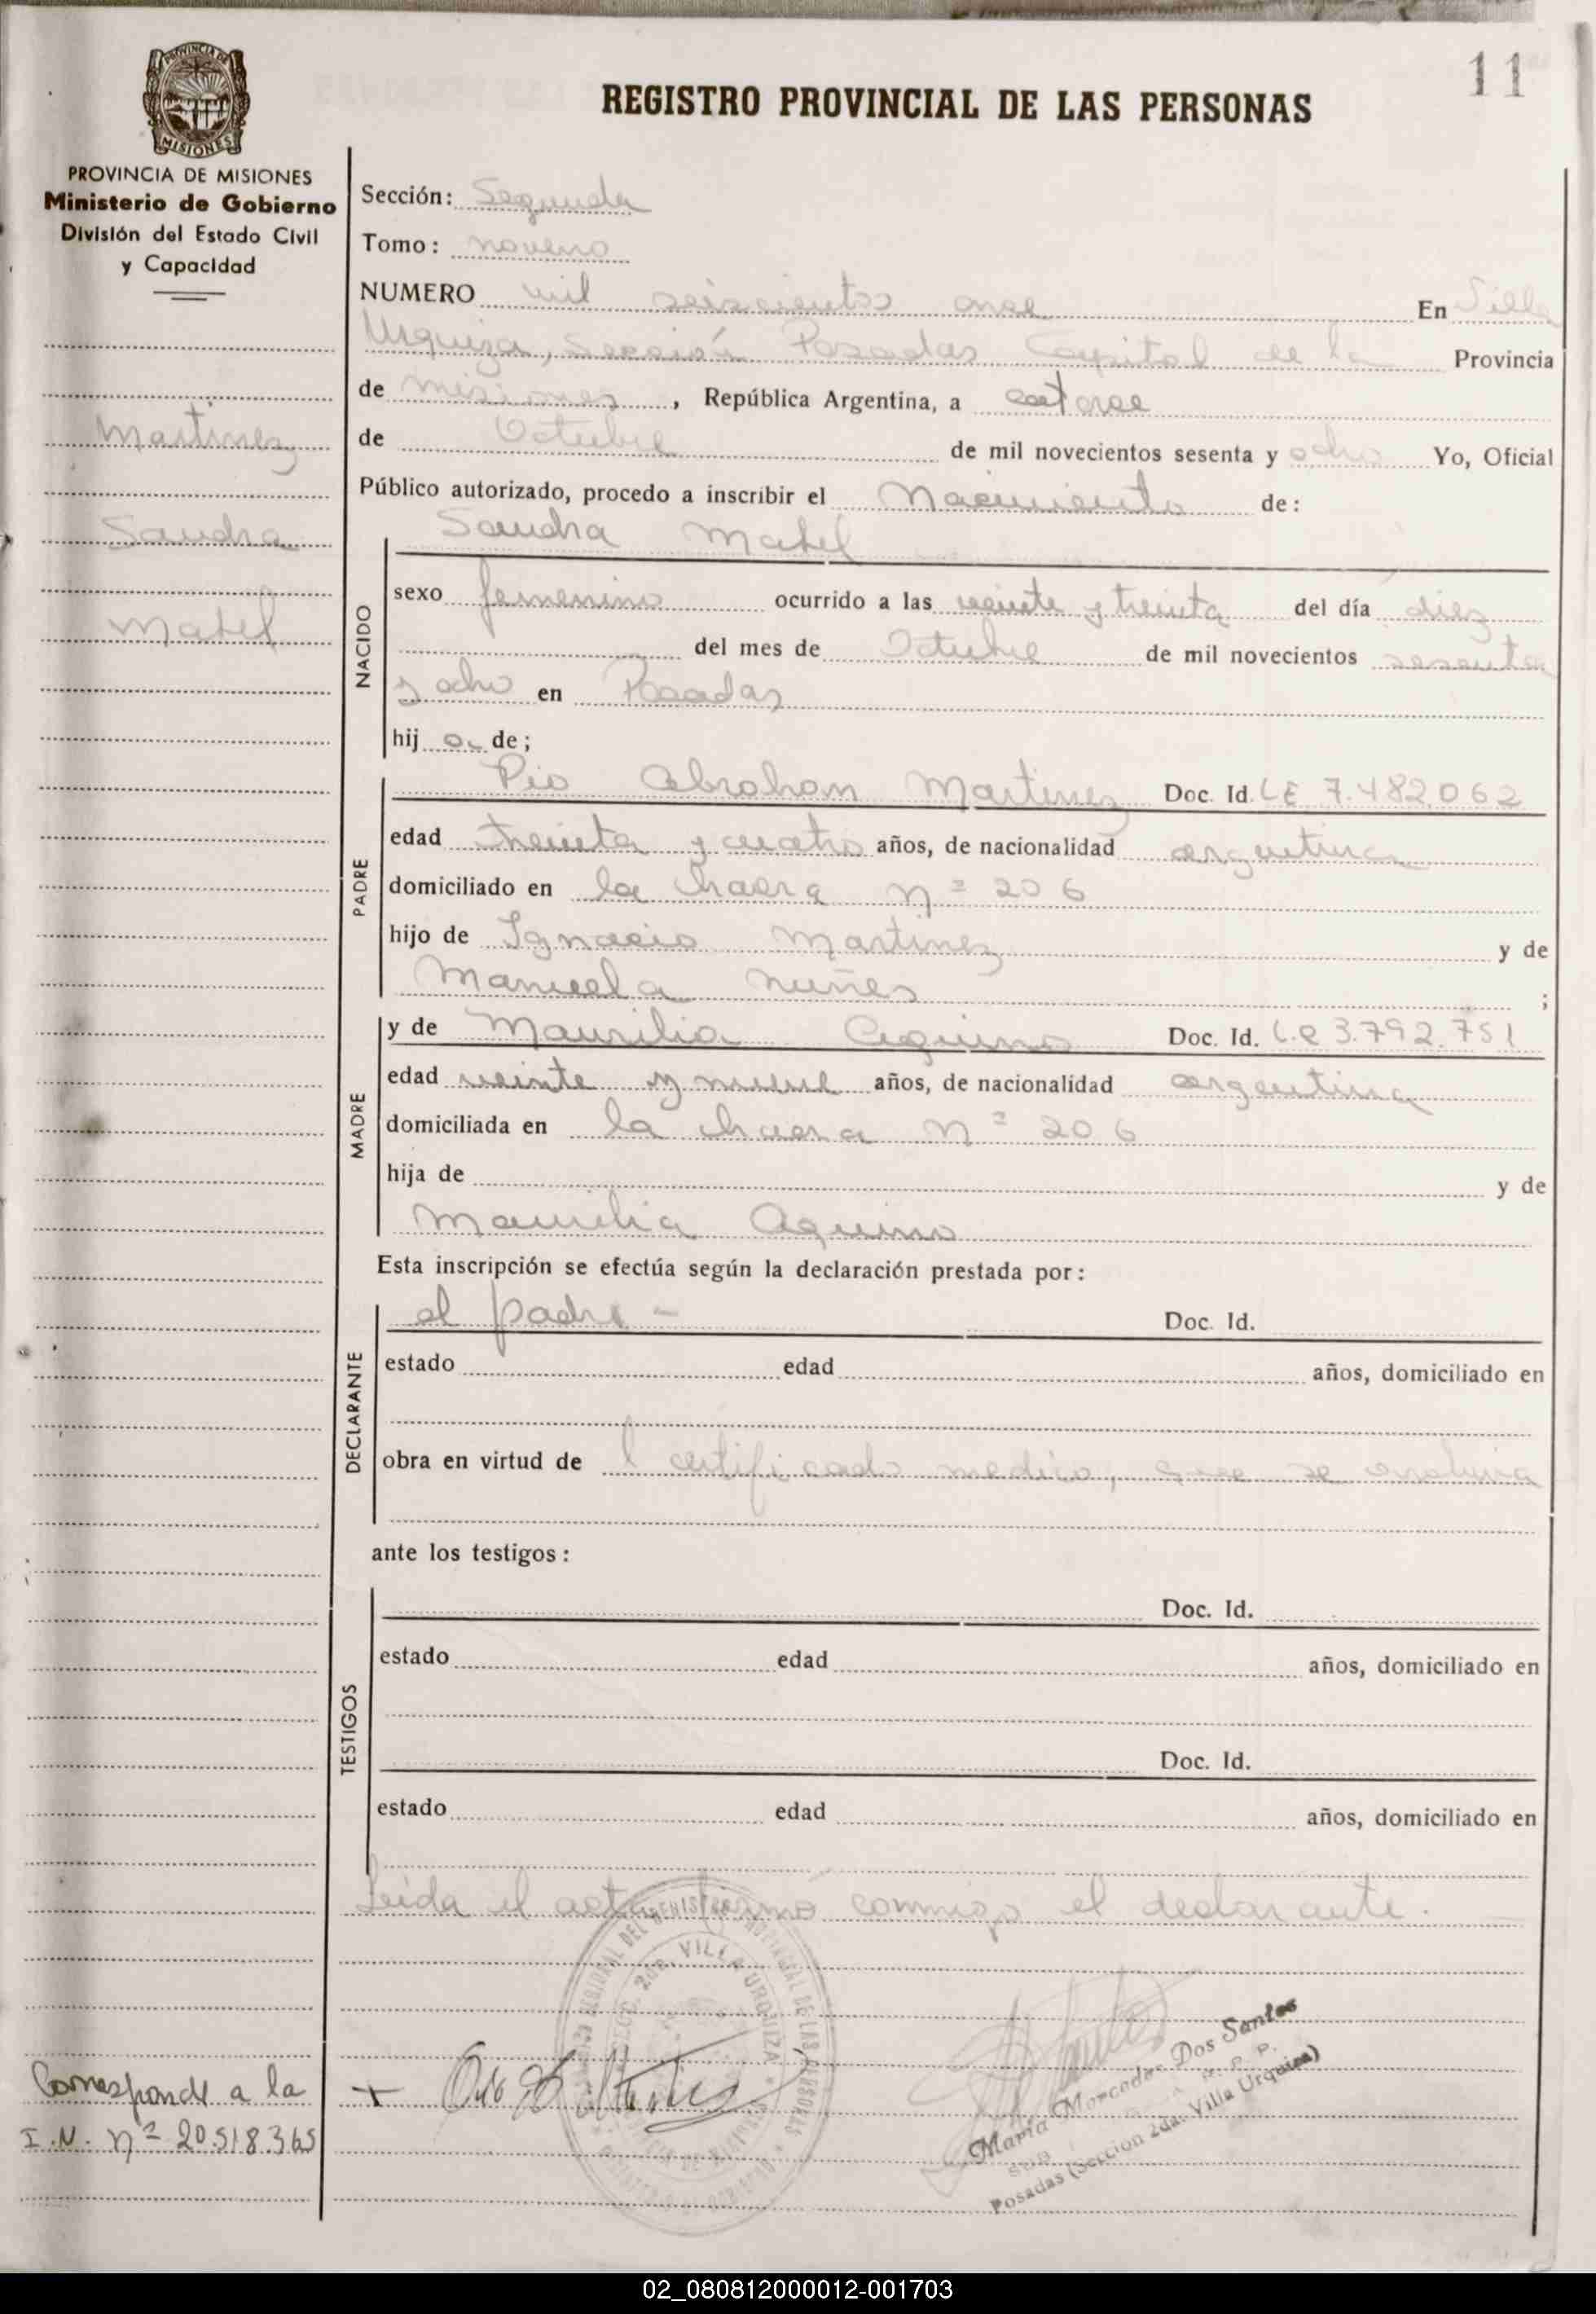 11
REGISTRO PROVINCIAL DE LAS PERSONAS
MISIONES
PROVINCIA DE MISIONES
Ministerio de Gobierno
División del Estado Civil
y Capacidad
Martinez
Sandra
Mabel
Sección: Segunda
Tomo: noveno
NUMERO mil seiscientos once En Villa
Urquiza, Sección Posadas Capital de la Provincia
de misiones, República Argentina, a catorce
de Octubre de mil novecientos sesenta y ocho Yo, Oficial
Público autorizado, procedo a inscribir el Nacimiento de:
NACIDO
Sandra Mabel
sexo femenino ocurrido a las veinte y treinta del día diez
del mes de Octubre de mil novecientos sesenta
y ocho en Posadas
hij a de;
PADRE
Pio Abraham Martinez Doc. Id. LE 7.482.062
edad treinta y cuatro años, de nacionalidad argentina
domiciliado en la chacra nº 206
hijo de Ignacio Martinez y de
Manuela nuñes ;
MADRE
y de Maurilia Aquino Doc. Id. L.C 3.792.751
edad veinte y nueve años, de nacionalidad argentina
domiciliada en la chacra nº 206
hija de y de
Maurilia Aquino
Esta inscripción se efectúa según la declaración prestada por:
DECLARANTE
el padre - Doc. Id.
estado edad años, domiciliado en
obra en virtud de l certificado medico, que se archiva
ante los testigos:
TESTIGOS
Doc. Id.
estado edad años, domiciliado en
Doc. Id.
estado edad años, domiciliado en
Leida el acta firmó conmigo el declarante.
VILLA URQUIZA
Maria Mercedes Dos Santos
Posadas (Sección 2da. Villa Urquiza)
Corresponde a la
I.N. nº 20.518.365
02_080812000012-001703